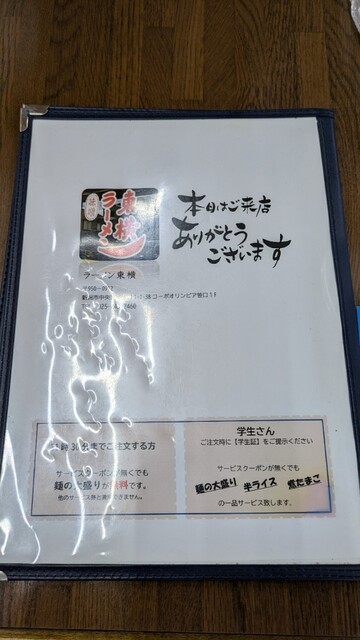 東横
ラーメン
本日はご来店
ありがとう
ございます
ラーメン東横
〒950-
新潟市中央 コーポオリンピア笹口1F
30分までご注文する方
サービスクーポンが無くても
麺の大盛りが無料です。
他のサービス券と併用できません。
学生さん
ご注文時に【学生証】をご提示ください
サービスクーポンが無くても
麺の大盛り 半ライス 煮たまご
の一品サービス致します。